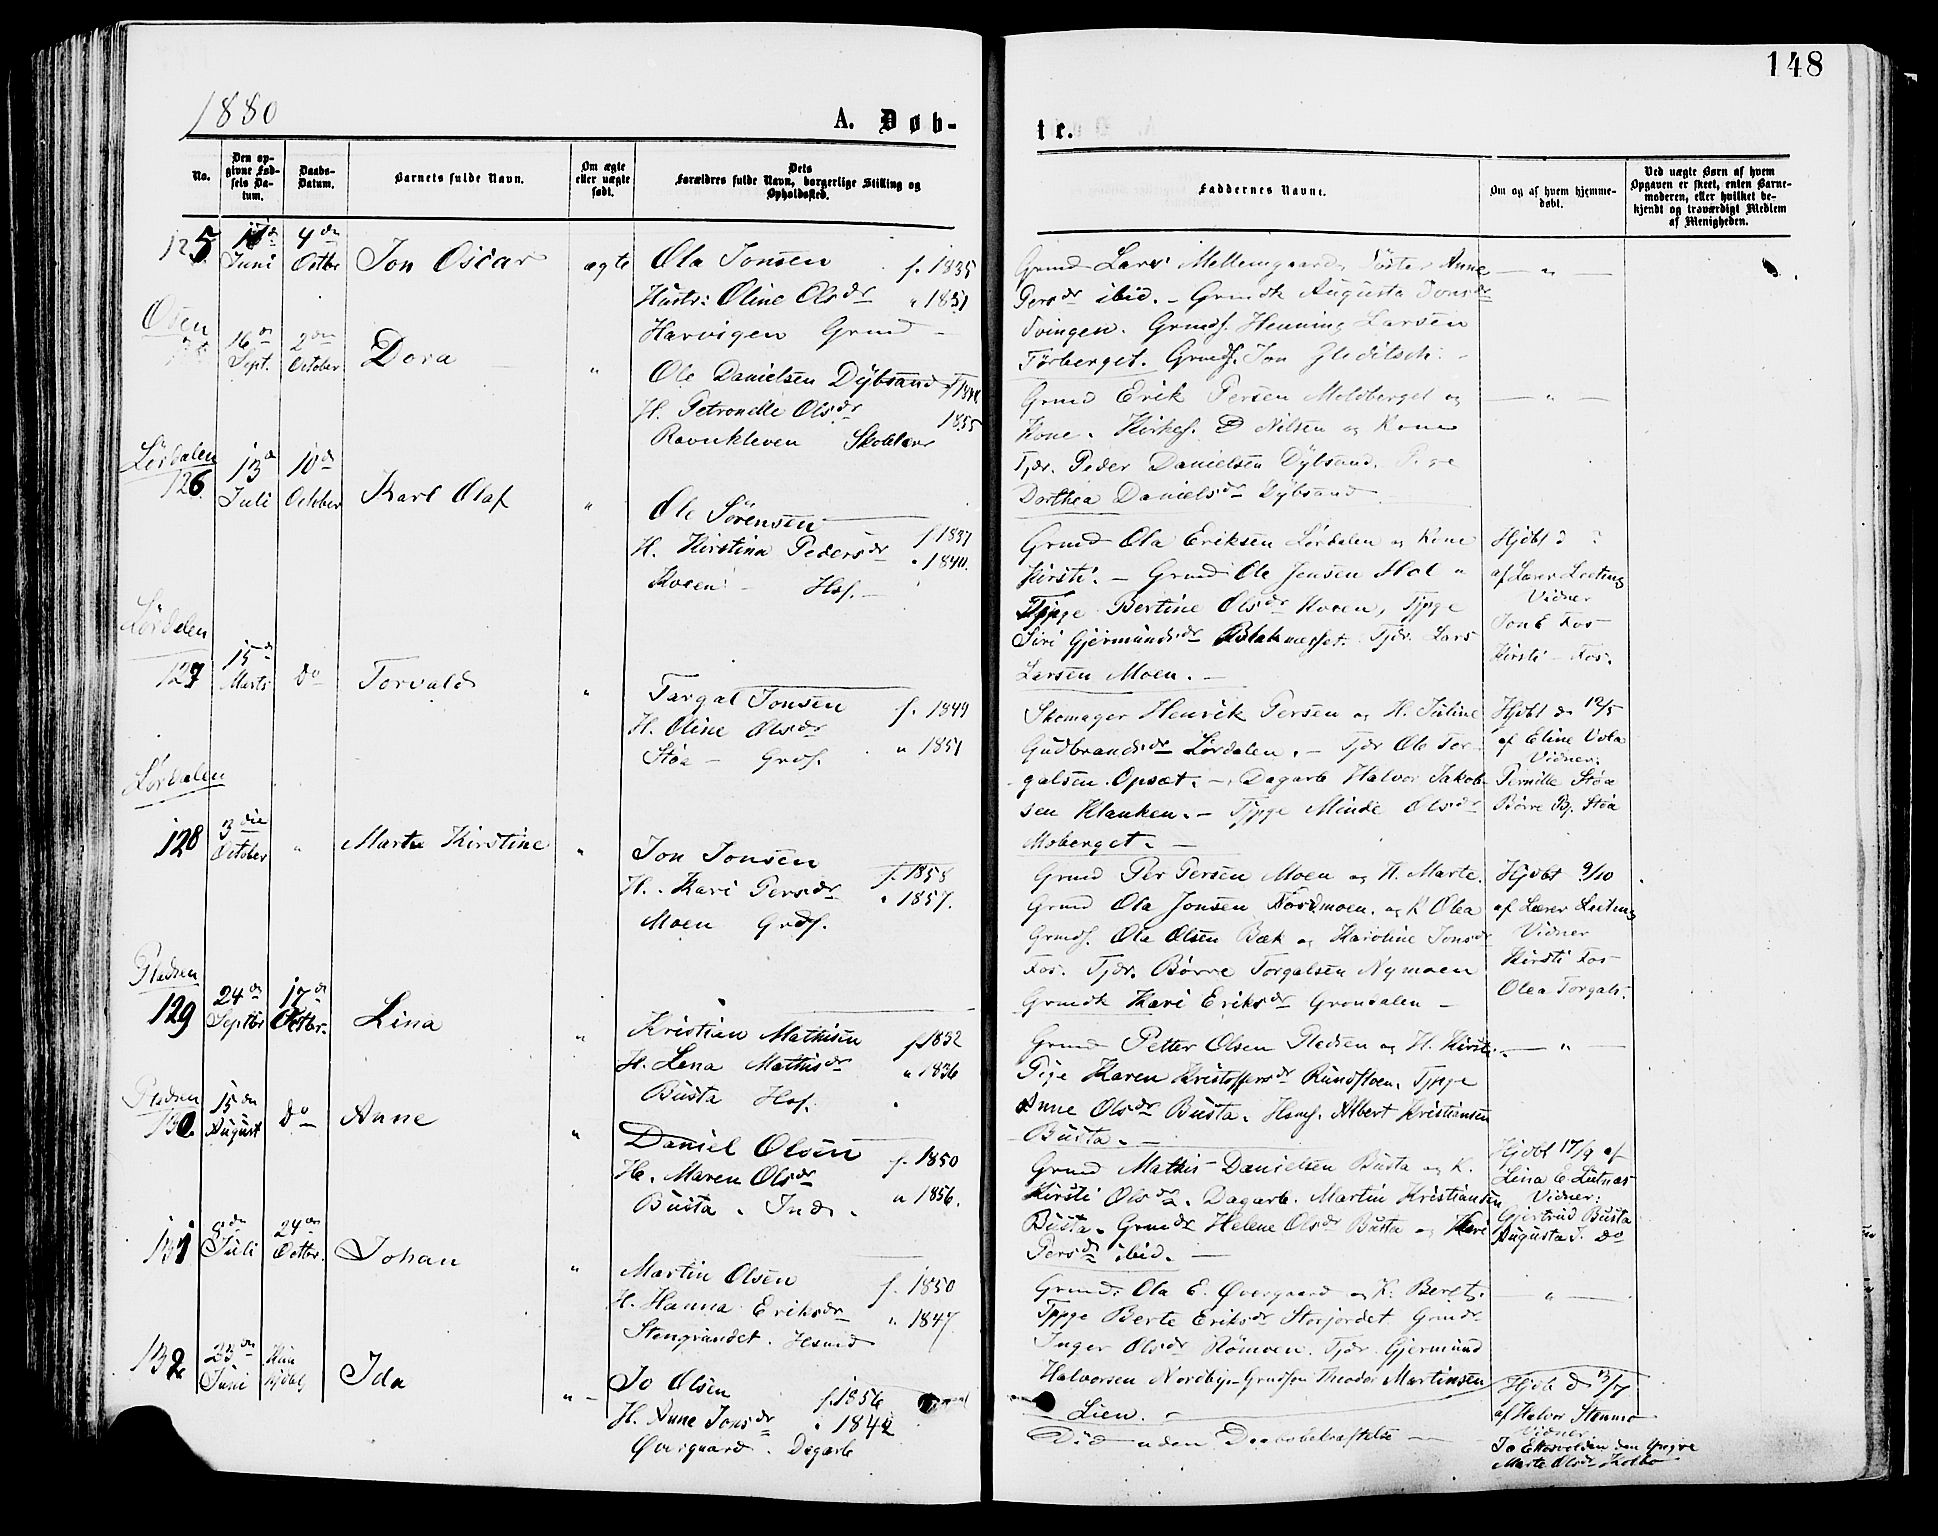 148
1880
A. Døb-
te.
No.
Den op-
givne Fød-
sels Da-
tum.
Daabs-
Datum.
Barnets fulde Navn.
Om ægte
eller uægte
født.
Dets
Forældres fulde Navn, borgerlige Stilling og
Opholdssted.
Faddernes Navne.
Om og af hvem hjemme-
døbt.
Ved uægte Børn af hvem
Opgaven er skeet, enten Barne-
moderen, eller hvilket be-
kjendt og troværdigt Medlem
af Menigheden.
125
Juni
4de
Octbr
Jon Oscar
ægte
Ola Jonsen f. 1835
Hustr: Oline Olsdr " 1831
Harvigen Grmd
Grmd Lars Mellemgaard, Søster Anne
Persdr ibid. - Grmdk Augusta Jonsdr
Svingen. Grmds. Henning Larsen
Førberget. Grmds. Jon Gleditsch.
— " —
Osen
16de
Sept.
2den
October
Dora
"
Ole Danielsen Dybsand
H. Petronelle Olsdr 1855
Ravnkleven Skolelærer
Grmd Erik Persen Moldberget og
Kone. Kirkes. D Nilsen og Kone
Tjdr. Peder Danielsen Dybsand. Pige
Dorthea Danielsdr Dybsand
— " —
Lørdalen
126
13de
Juli
10de
October
Karl Olaf
"
Ole Sörensen f 1837
H. Kirstina Pedersdr " 1840.
Moen Hsf.
Grmd Ola Eriksen Lørdalen og Kone
Kirsti. - Grmd Ole Jensen
Tjpge Bertine Olsdr Moen, Tjpge
Siri Gjermundsdr Blaknesset. Tjdr. Lars
Larsen Moen. -
Hjdbt
af Lærer Leeting
Vidner
Jon E Fos
Kirsti - Fos.
Lørdalen
127
15de
Marts
Do
Torvald
"
Targal Jonsen f. 1849
H. Oline Olsdr " 1851
Støa - Grds.
Skomager Henrik Persen og H. Juline
Gudbrandsdr Lørdalen. - Tjdr Ole Tor-
galsen Opsæt. - Dagarb Halvor Jakob-
sen Klanken. - Tjpge Minde Olsdr
Moberget. -
Hjdbt d. 12/5
af Eline Vola
Vidner:
Pernille Støa
Børre Bj. Støa
Lørdalen
128
3die
October
"
Marte Kirstine
"
Jon Jonsen f. 1858
H. Kari Persdr " 1857.
Moen Grds.
Grmd Per Persen Moen og H. Marte.
Grmd Ola Jonsen Nordmoen. og K Olea
Grmds. Ola Olsen Bæk og Karoline Jonsdr
Fos. Tjdr. Børre Torgalsen Nymoen
Grmdk Kari Eriksdr Grondalen -
Hjdbt 9/10
af Lærer Leeting
Vidner
Kirsti Fos
Olea Torgals.
Pladsen
129
24de
Septbr
17de
Octbr.
Lina
"
Kristian Mathisen f. 1852
H. Lena Mathisdr " 1836
Busta Hsf.
Grmd Petter Olsen Pladsen og H. Kirsti.
Pige Karen Kristoffersdr Rundfloen. Tjpge
Anne Olsdr Busta. Hsmf. Albert Kristiansen
Busta. -
— " —
Pladsen
130
15de
August
Do
Anne
"
Daniel Olsen f. 1850
H. Maren Olsdr " 1856.
Busta. Ind.
Grmd Mathis Danielsen Busta og K.
Kirsti Olsdr. Dagarb. Martin Kristiansen
Busta. Grmdr Helene Olsdr Busta og Kari
Persdr ibid. -
Hjdbt 17/9 af
Lina E Lutnæs
Vidner:
Gjertrud Busta
Augusta J. do
131
8de
Juli
24de
Octbr.
Johan
"
Martin Olsen f. 1850
H. Hanna Eriksdr " 1847.
Stengrundet. Hsmd
Grmd. Ola E. Øvergaard og K. Beret.
Tjpge Berte Eriksdr Storjordet Grmdr
Inger Olsdr Römoen. Tjdr. Gjermund
Halvorsen Nordby. Grmdsøn Theodor Martinsen
Lien. -
— " —
132
23de
Juni
Kun
hjdbt
Ida
"
Jo Olsen f. 1856
H. Anne Jonsdr " 1842
Øvergaard. Dagarb
Död uden Daabsbekræftelse
Hjdb d 13/7
af Halvor Stenmo
Vidner
Jo Ellosvolden den Yngre
Marte Olsdr Kolbo